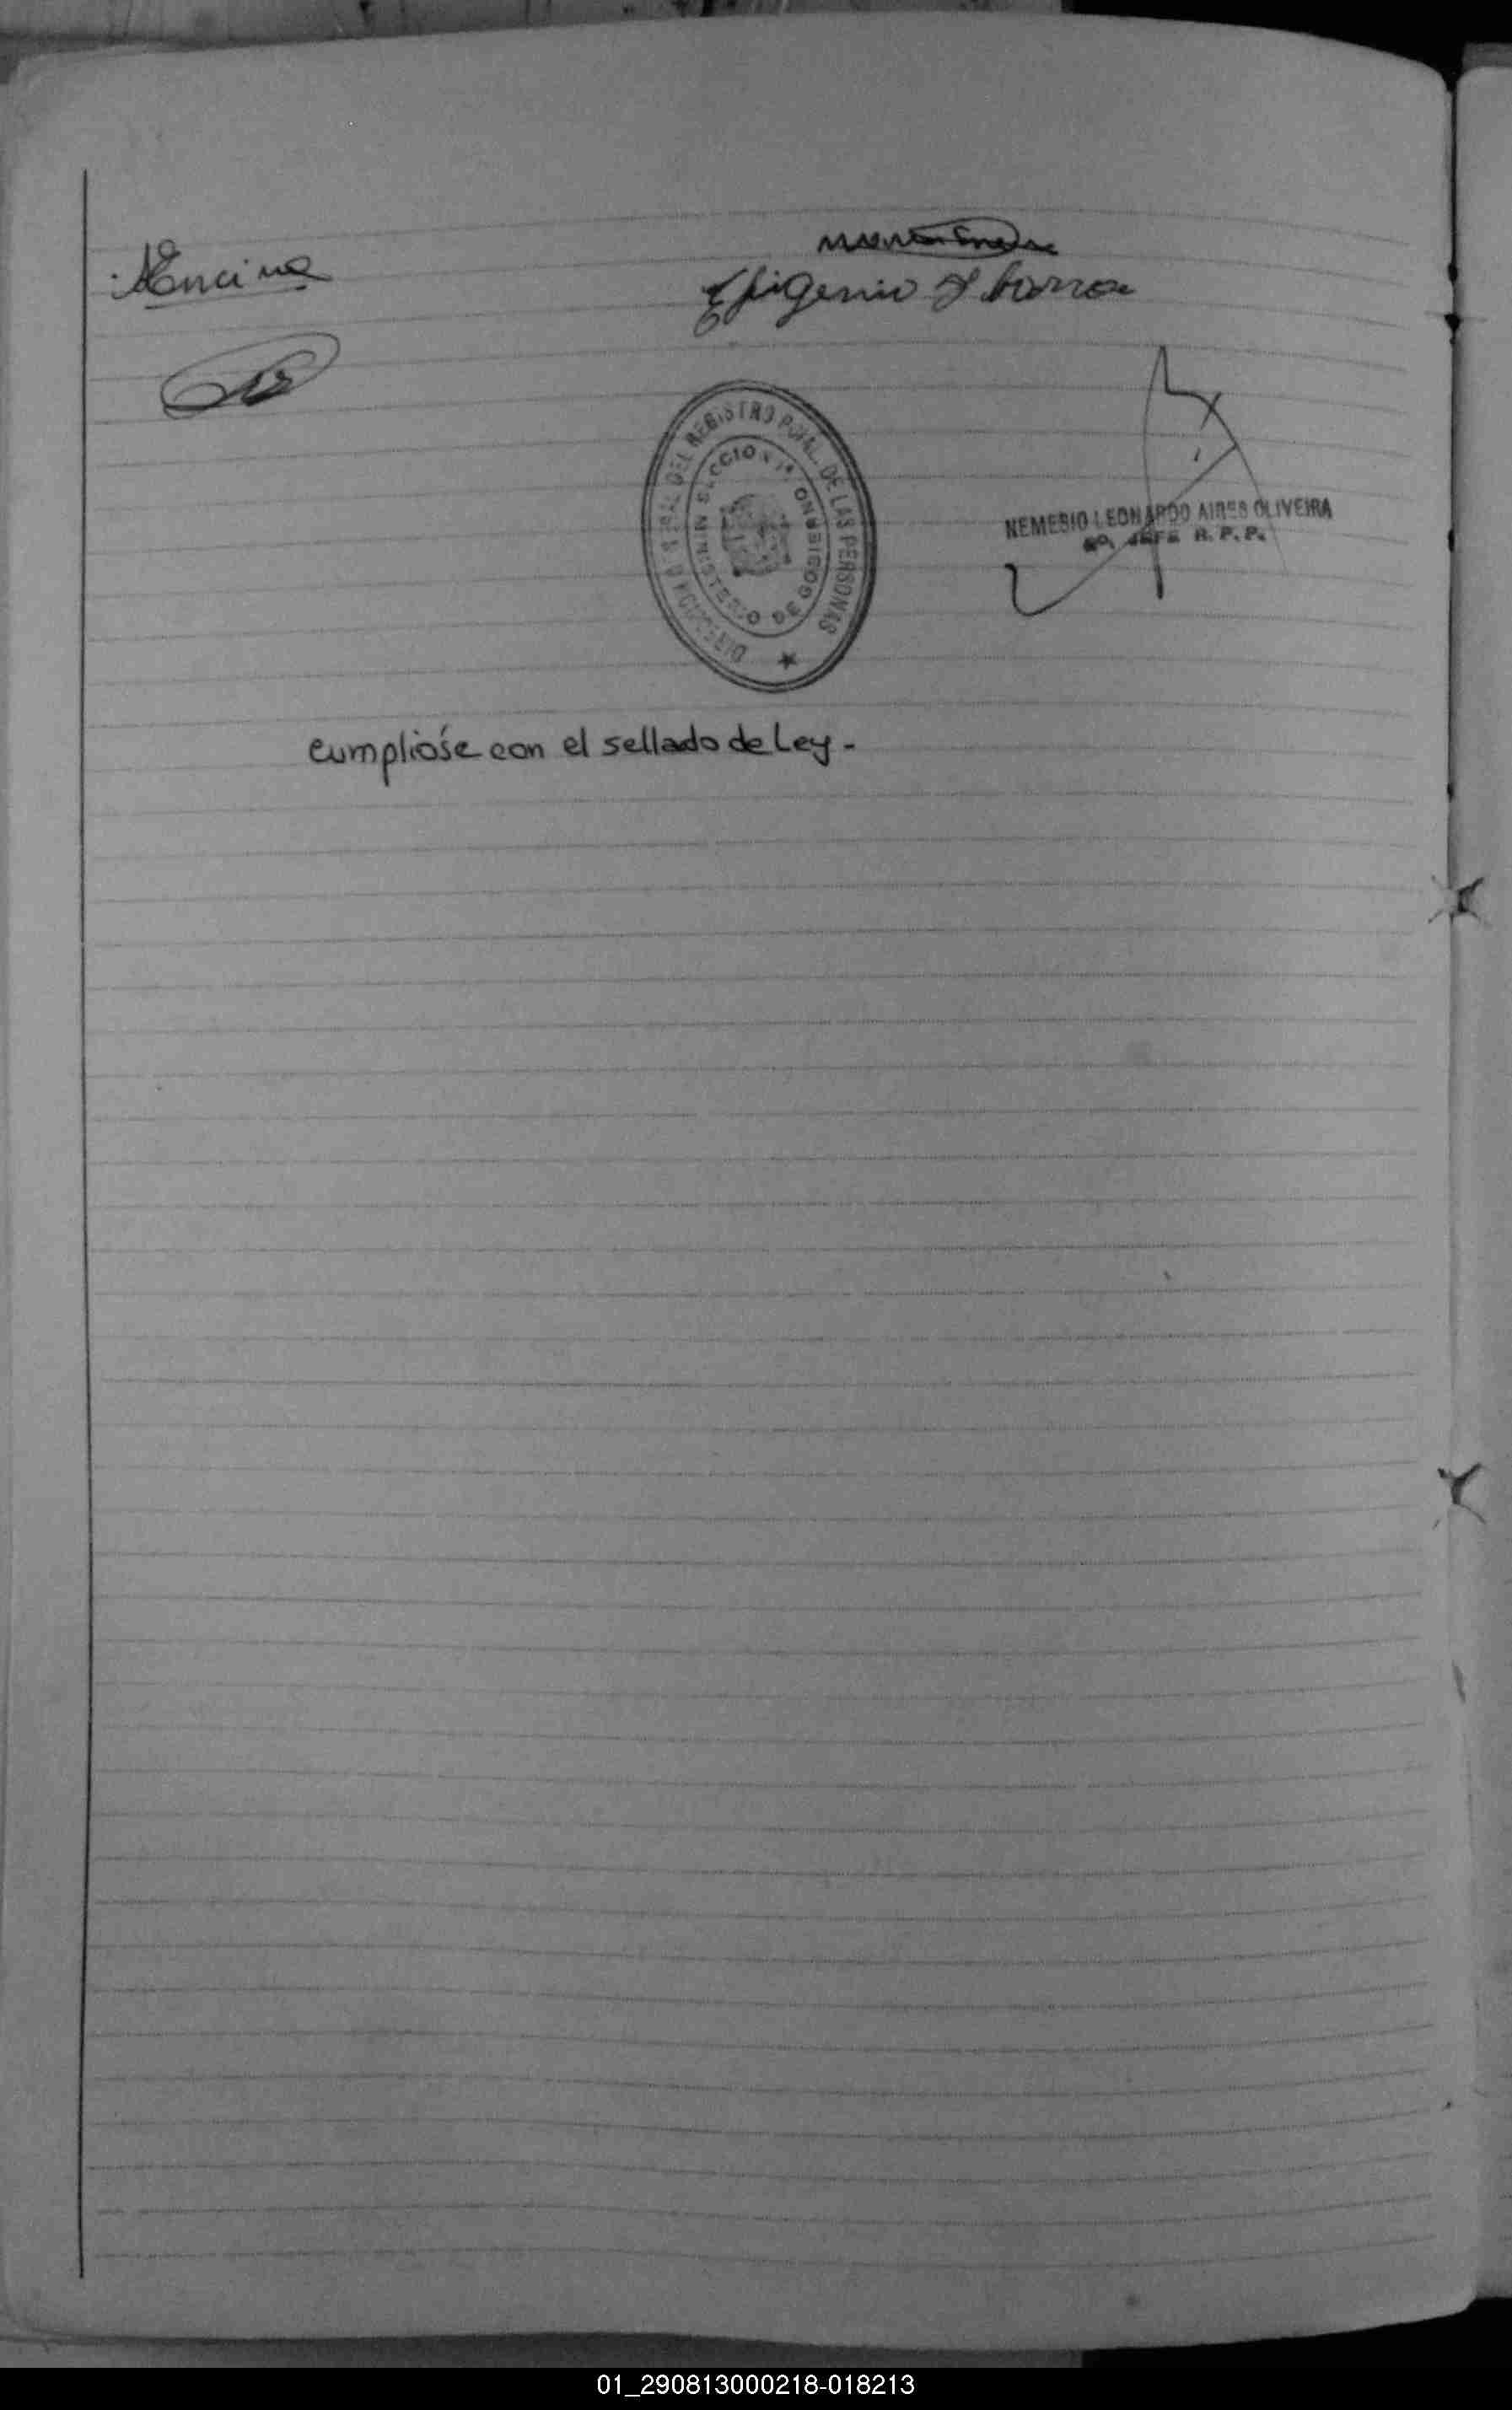 Encina
Epigenio Ybarra
DIRECCION GRAL. DEL REGISTRO PCIAL. DE LAS PERSONAS
MINISTERIO DE GOBIERNO
SECCION 1ª
NEMESIO LEONARDO AIRES OLIVEIRA
JEFE R. P. P.
Cumplióse con el sellado de Ley -
01_290813000218-018213